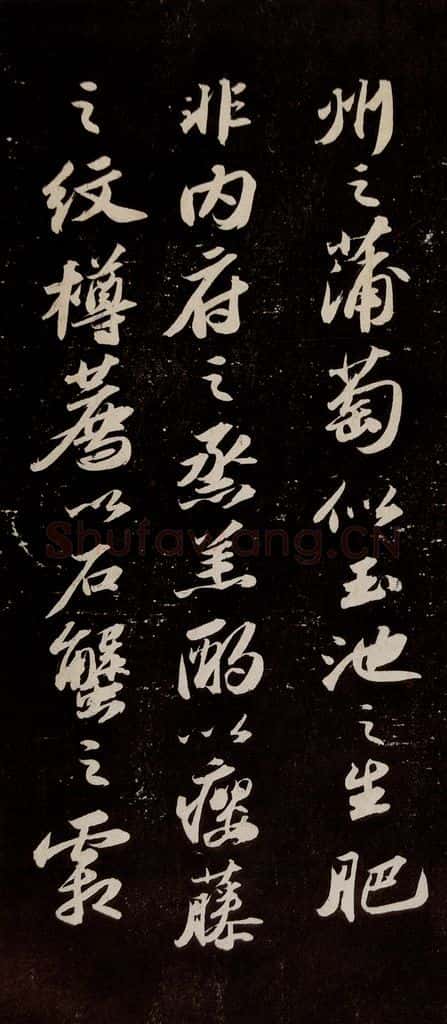 州之蒲萄似玉池之生肥
非内府之烝羔酌以癭藤
之紋樽薦以石蟹之霜
Shufawang.CN